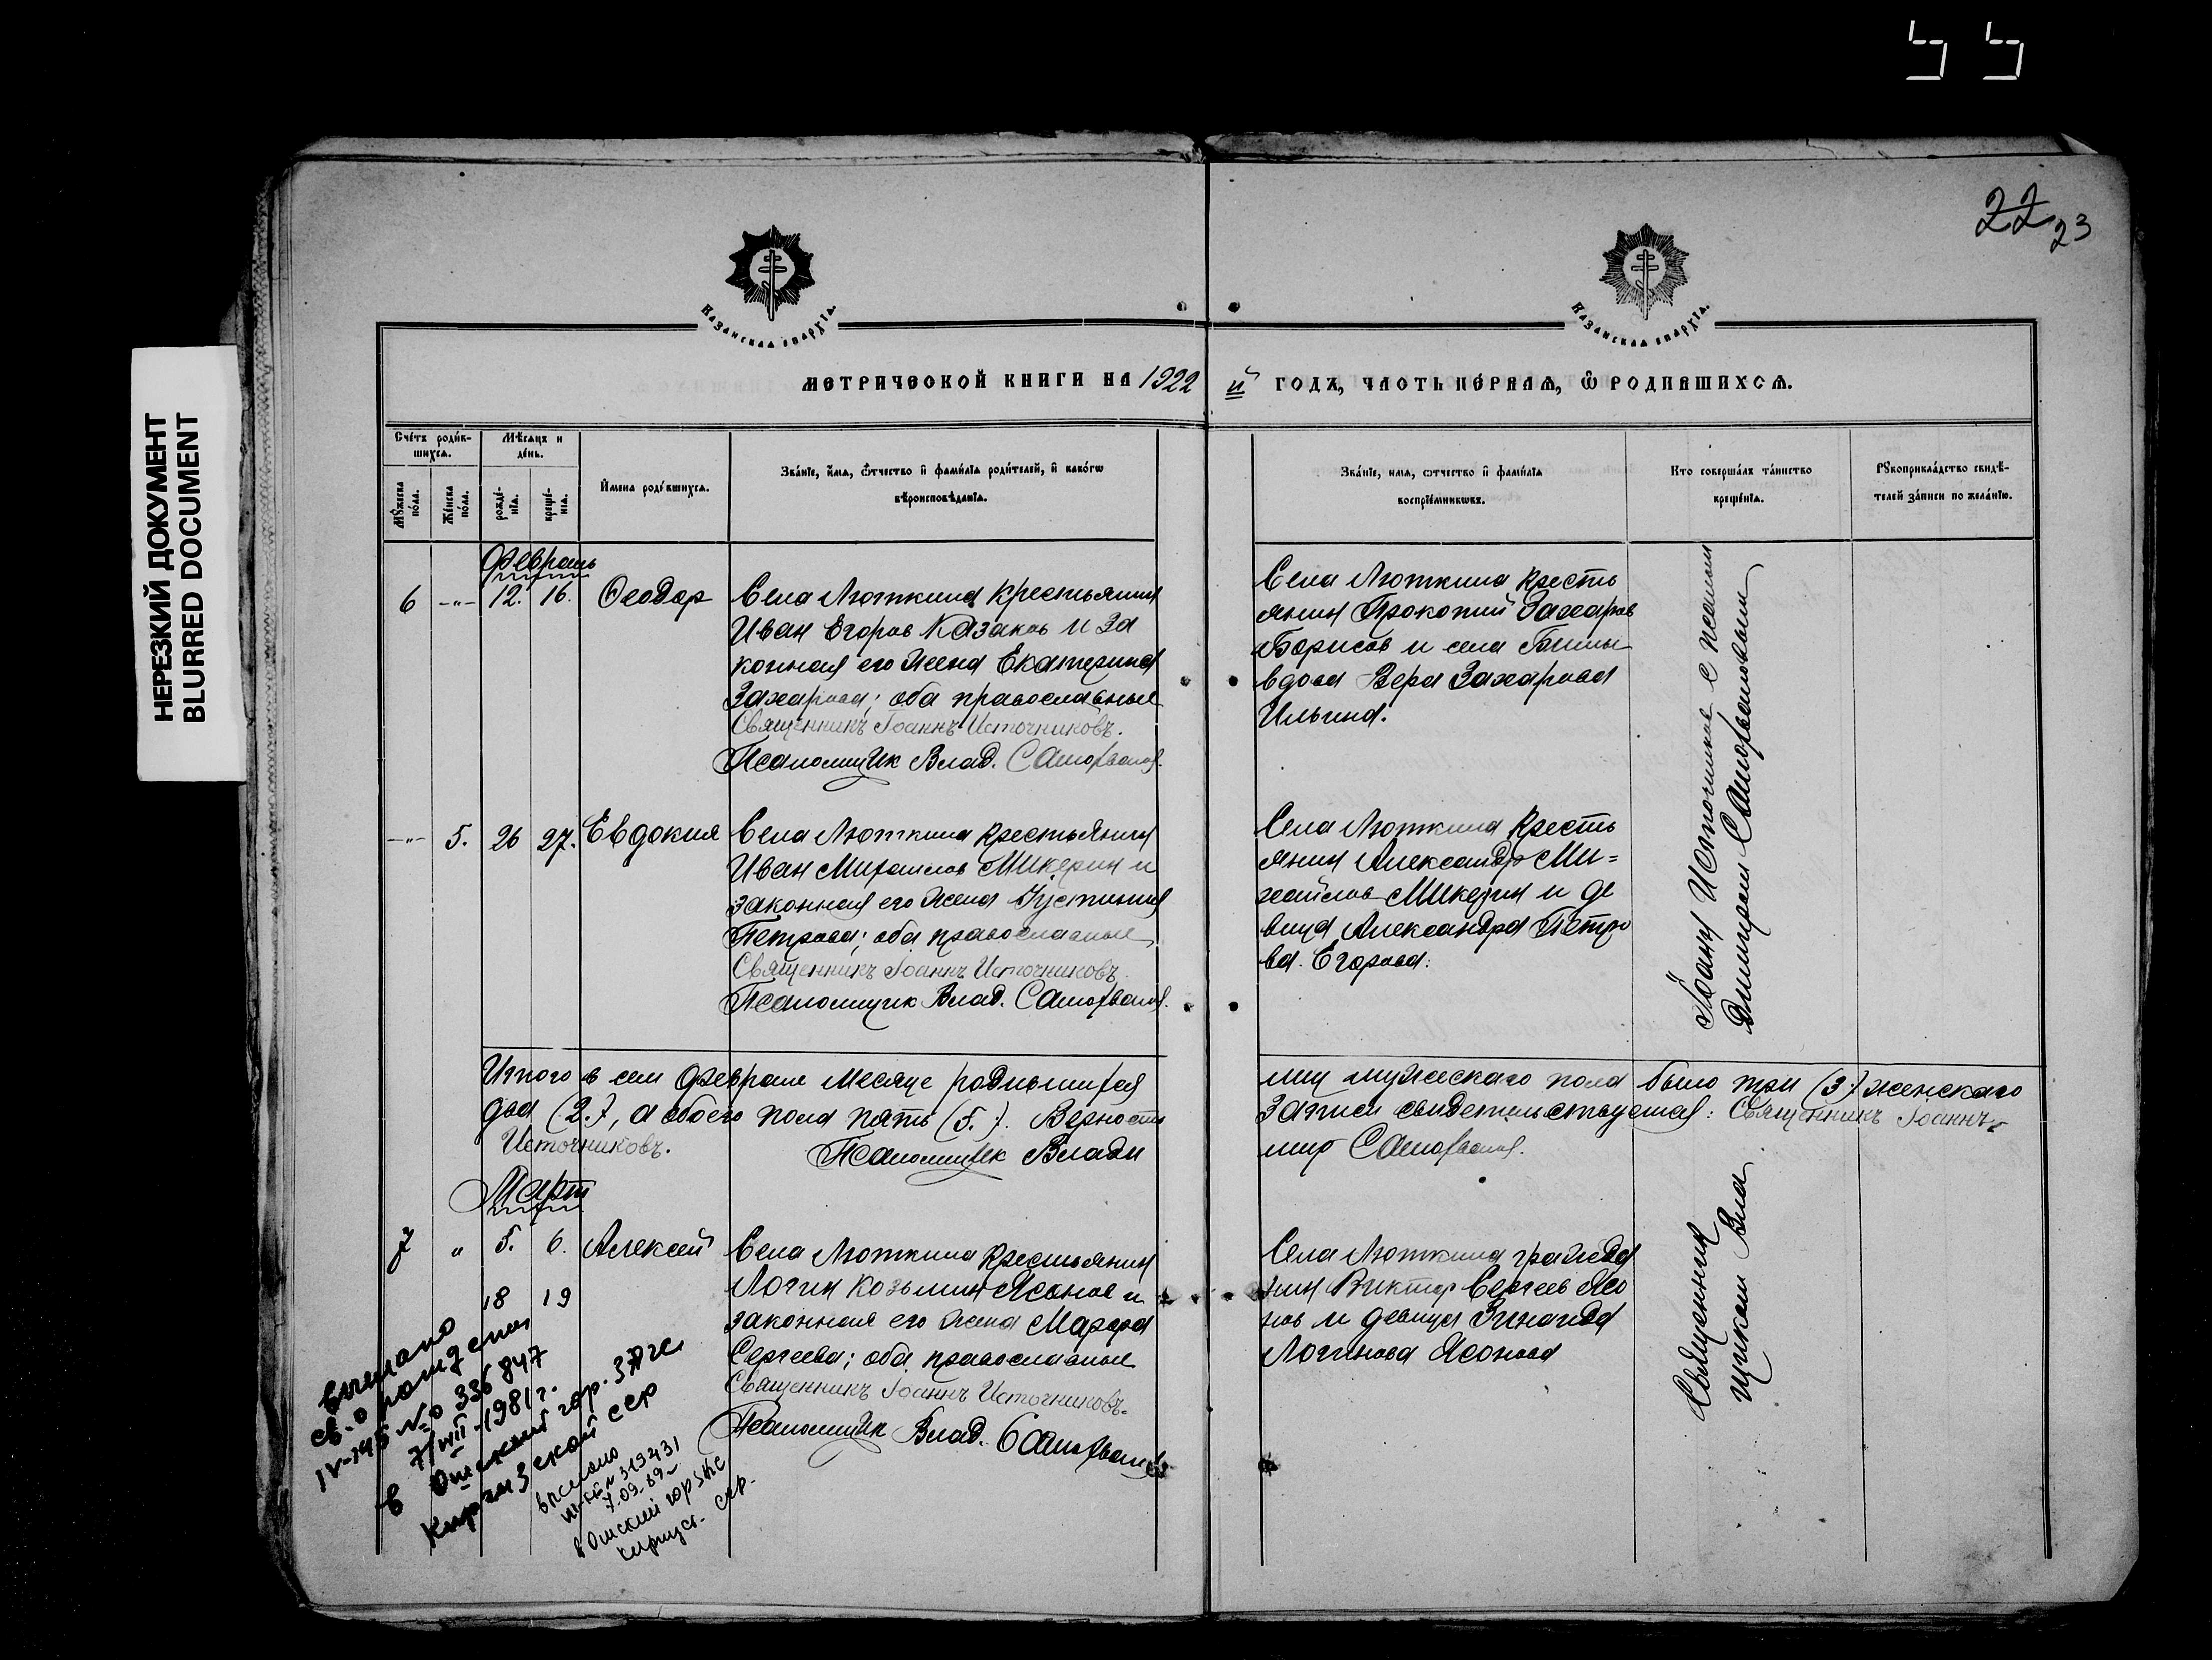 22 23
НЕРЕЗКИЙ ДОКУМЕНТ
BLURRED DOCUMENT
Казанская епархїа.
Казанская епархїа.
МЕТРИЧЕСКОЙ КНИГИ НА 1922 й ГОДЪ, ЧАСТЬ ПЕРВАЯ, Ѽ РОДИВШИХСѦ.
Счетъ родив-
шихсѧ.
Мꙋжеска
пола.
Женска
пола.
Мѣсѧцъ и
день.
рожде-
нїѧ.
креще-
нїѧ.
Имена родившихсѧ.
Званїе, имѧ, ѿтчество и фамилїа родителей, и какогѡ
вѣроисповѣданїѧ.
Званїе, имѧ, ѿтчество и фамилїа
воспрїемникѡвъ.
Кто совершалъ таинство
крещенїѧ.
Рꙋкоприкладство свидѣ-
телей записи по желанїю.
Февраль
6 -"- 12. 16. Феодор
Села Люткина крестьянин
Иван Егоров Казаков и за
конная его жена Екатерина
Захарова; оба православные
Священникъ Іоаннъ Источниковъ.
Псаломщик Влад.
Села Люткина кресть
янин Прокопий Захаров
Борисов и села
вдова Вера Захарова
Ильина.
-"- 5. 26 27. Евдокия
Села Люткина крестьянин
Иван Михайлов Микерин и
законная его жена Устиния
Петрова; оба православные
Священникъ Іоаннъ Источниковъ.
Псаломщик Влад.
Села Люткина кресть
янин Александр Ми=
хайлов Микерин и де
вица Александра Петро
ва Егорова.
Итого в сем феврале месяце родившихся
мужескаго пола было три (3.) женскаго
два (2.), а обоего пола пять (5.). Верность
записи свидетельствуется: Священникъ Іоаннъ
Источниковъ. Псаломщик Влади
мир
Март
7 " 5. 6. Алексей
18 19
Села Люткина крестьянин
Логин Козьмин Ясонов и
законная его жена Марфа
Сергеева; оба православные
Священникъ Іоаннъ Источниковъ.
Псаломщик Влад.
Села Люткина гражда
нин Виктор Сергеев Ясо
нов и девица Зинаида
Логинова Ясонова
Священник
Іоанн Источников с псалом
щиком Вла
димиром
выслано
св. о рождении
IV-ИБ № 336847
7/VII-1981г.
в Ошский гор. ЗАГС
Киргизской ССР
выслано
№ 319431
7.09.89
в Ошский горЗАГС
Киргизс. ССР.